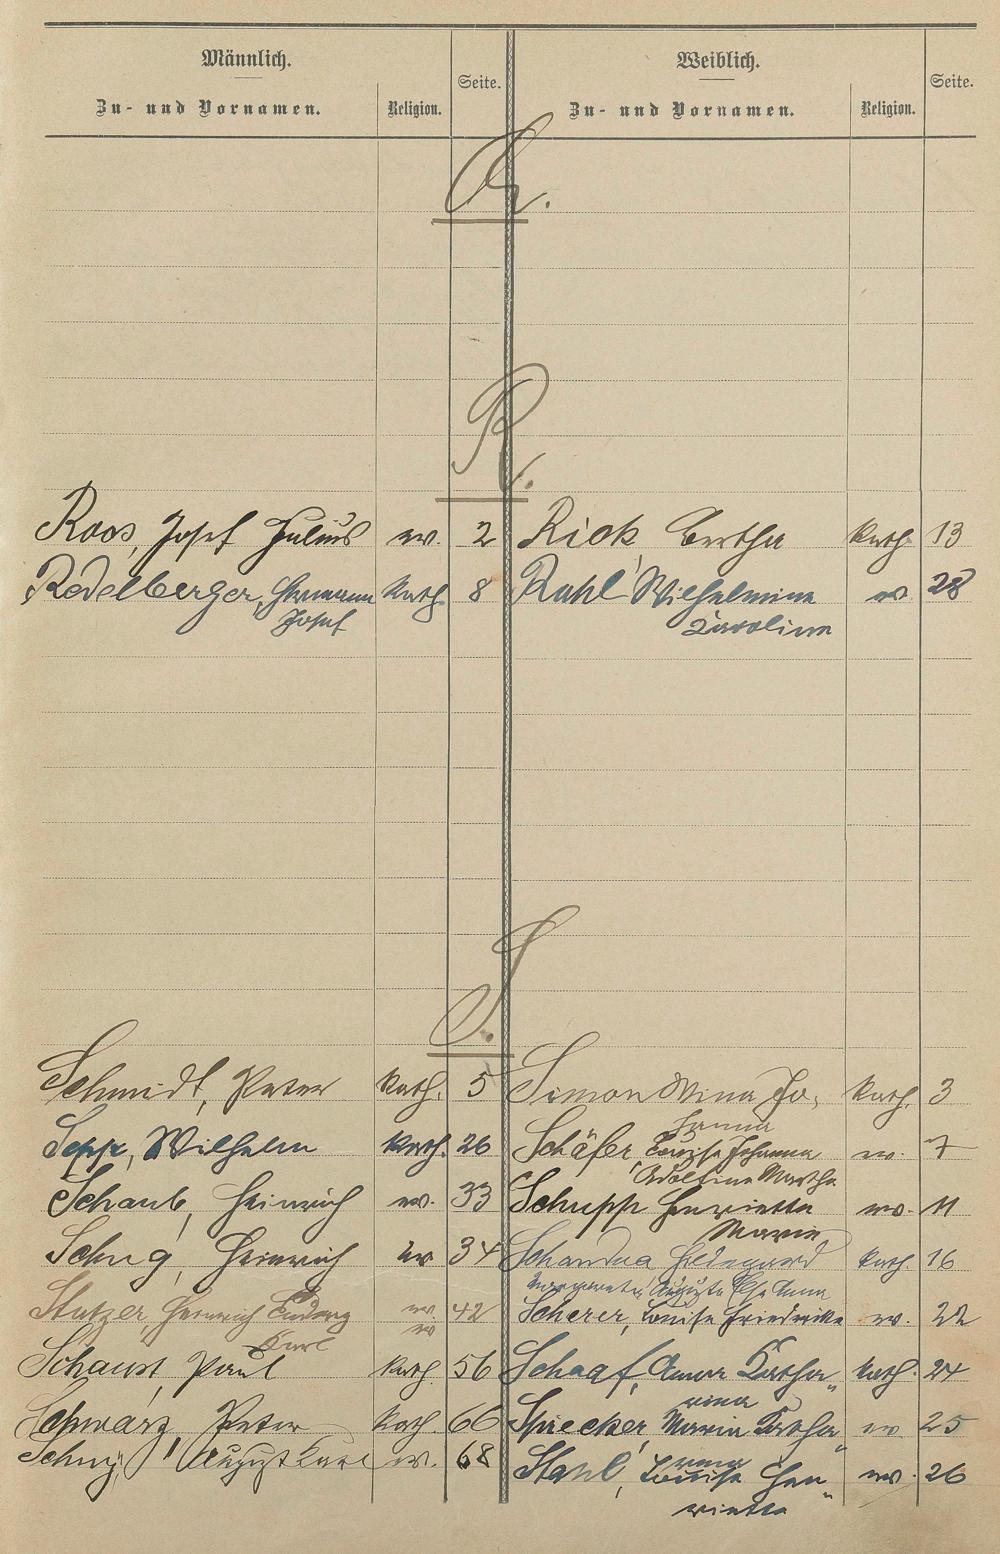 Männlich. Seite. Weiblich. Seite.
Zu- und Vornamen. Religion. Zu- und Vornamen. Religion.
R.
Roos, Josef Julius ev. 2 Rick Bertha kath. 13
Redelberger, Hermann kath. 8 Rahl Wilhelmine ev 28
Josef Karoline
S.
Schmidt, Peter kath. 5 Simon Mina Jo, kath. 3
hanna
Sepp, Wilhelm kath. 26 Schäfer Louise Johanna ev. 7
Adolfine Martha
Schaub, Heinrich ev. 33 Schupp Henriette ev. 11
Marie
Schug, Heinrich ev 34 Hildegard kath. 16
Margarete, Auguste Anna
Stutzer, Heinrich Ludwig ev. 42 Scherer, Louise Friederike ev. 22
Karl ev
Schaust, Paul kath. 56 Schaaf, Anna Katha„ kath. 24
rina
Schwarz, Peter kath. 66 Sprecker, Maria Katha„ ev 25
rina
Schug, August Karl ev. 68 Stahl, Louise Hen„ ev. 26
riette